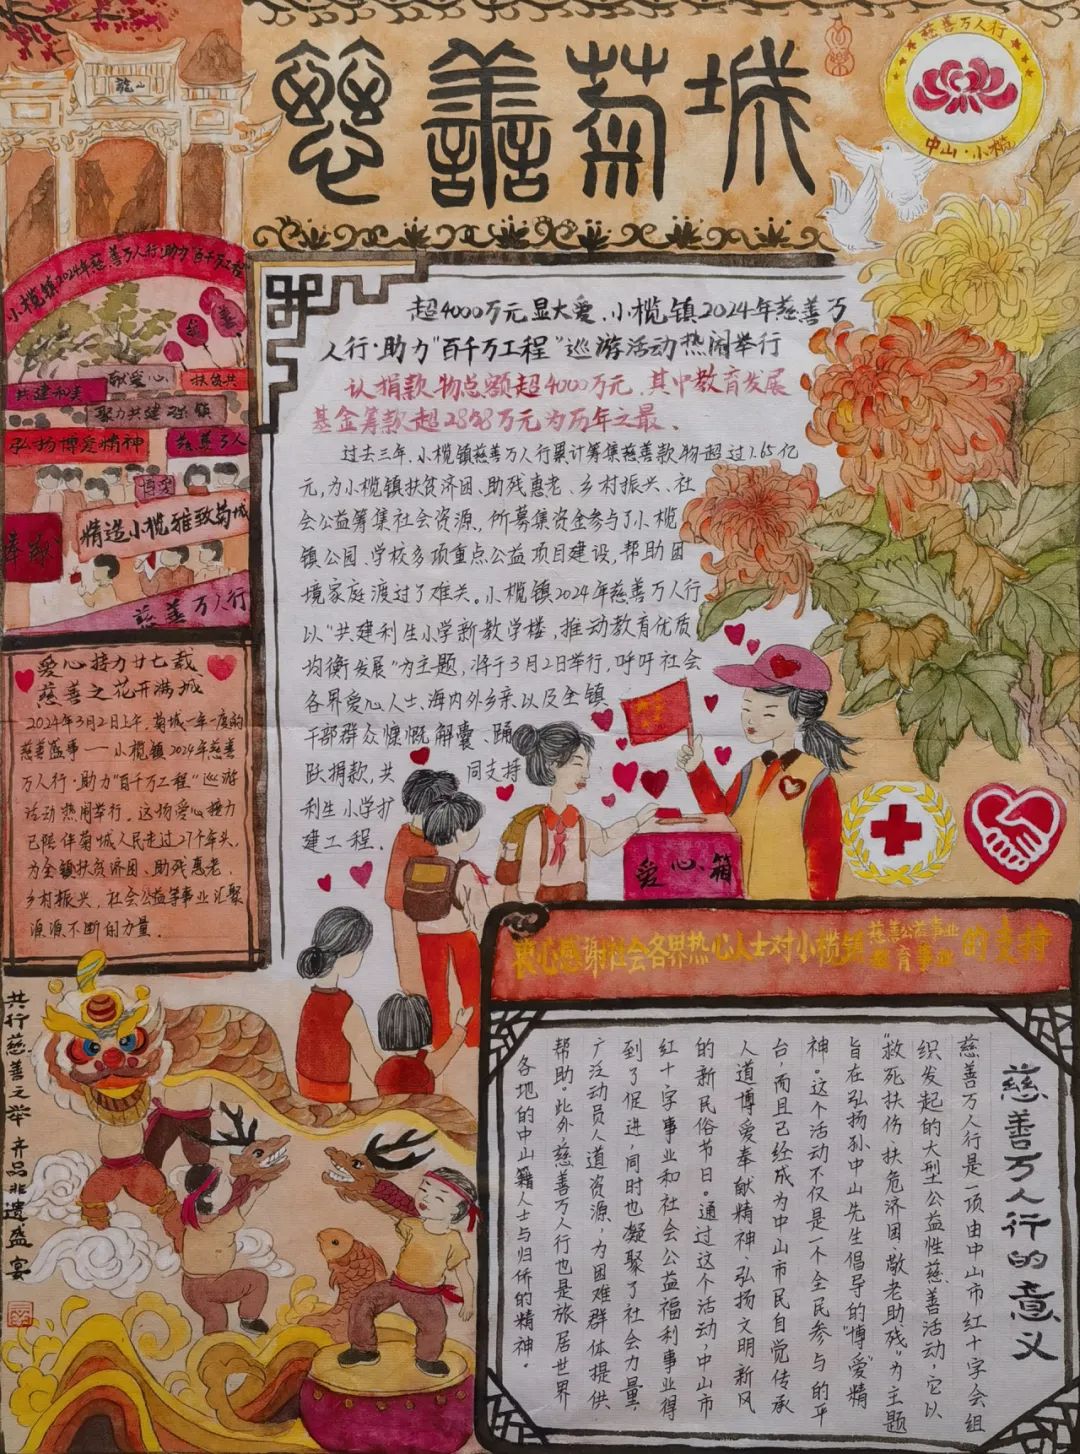 慈善菊城
慈善万人行
中山·小榄
龙山
小榄镇2024年慈善万人行·助力"百千万工程"
慈
善
共建和美
献爱心
扶贫共
聚力共建强镇
弘扬博爱精神
慈善万人
博爱
精造小榄雅致菊城
奉献
慈善万人行
超4000万元显大爱,小榄镇2024年慈善万
人行·助力"百千万工程"巡游活动热闹举行
认捐款、物总额超4000万元,其中教育发展
基金筹款超2858万元为历年之最、
过去三年,小榄镇慈善万人行累计筹集慈善款、物超过1.65亿
元,为小榄镇扶贫济困、助残惠老、乡村振兴、社
会公益筹集社会资源,所募集资金参与了小榄
镇公园、学校多项重点公益项目建设,帮助困
境家庭渡过了难关。小榄镇2024年慈善万人行
以"共建利生小学新教学楼,推动教育优质
均衡发展"为主题,将于3月2日举行,呼吁社会
各界爱心人士、海内外乡亲以及全镇
干部群众慷慨解囊、踊
跃捐款,共同支持
利生小学扩
建工程.
爱心接力廿七载
慈善之花开满城
2024年3月2日上午,菊城一年一度的
慈善盛事——小榄镇2024年慈善
万人行·助力"百千万工程"巡游
活动热闹举行。这场爱心接力
已陪伴菊城人民走过27个年头,
为全镇扶贫济困、助残惠老、
乡村振兴、社会公益等事业汇聚
源源不断的力量.
爱心箱
衷心感谢社会各界热心人士对小榄镇慈善公益事业教育事业的支持
慈善万人行的意义
慈善万人行是一项由中山市红十字会组
织发起的大型公益性慈善活动,它以
"救死扶伤、扶危济困、敬老助残"为主题
旨在弘扬孙中山先生倡导的"博爱"精
神。这个活动不仅是一个全民参与的平
台,而且已经成为中山市民自觉传承
人道博爱奉献精神、弘扬文明新风
的新民俗节日。通过这个活动,中山市
红十字事业和社会公益福利事业得
到了促进,同时也凝聚了社会力量,
广泛动员人道资源,为困难群体提供
帮助。此外,慈善万人行也是旅居世界
各地的中山籍人士与归侨的精神。
共行慈善之举 齐品非遗盛宴